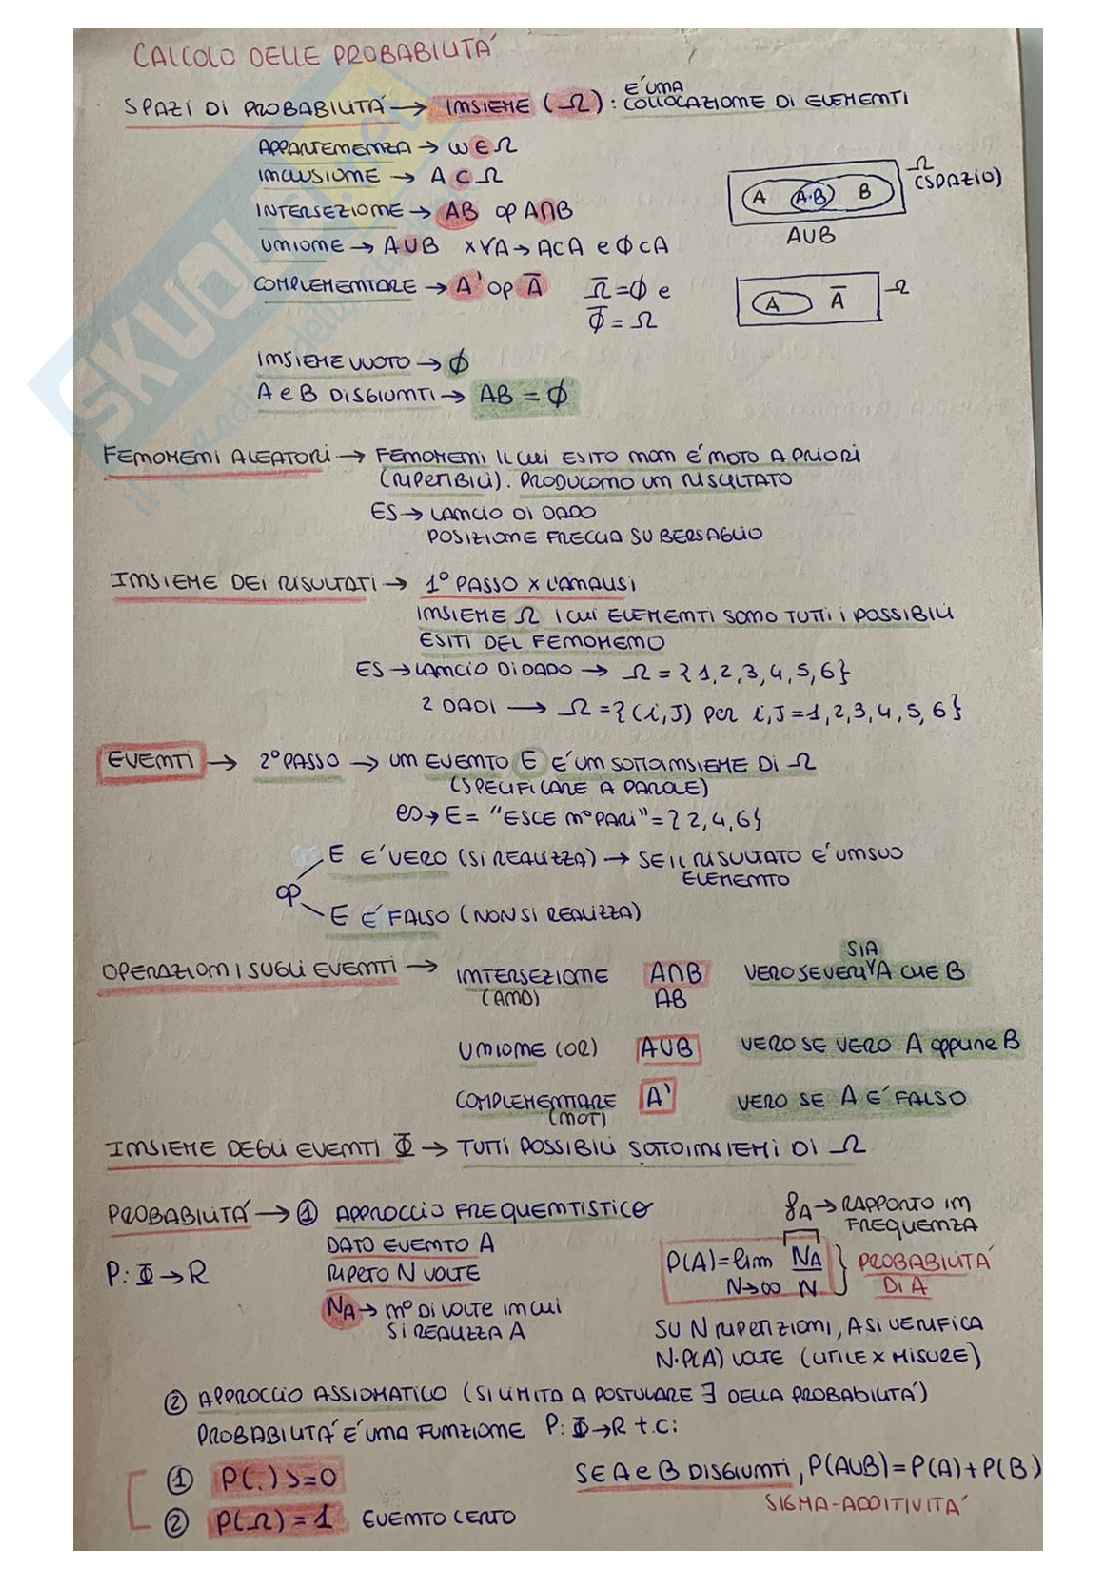 CALCOLO DELLE PROBABILITÀ
SPAZI DI PROBABILITÀ → INSIEME (Ω) : È UNA COLLOCAZIONE DI ELEMENTI
APPARTENENZA → ω ∈ Ω
INCLUSIONE → A ⊂ Ω
INTERSEZIONE → AB op A∩B
UNIONE → A∪B x ∀A → A⊂A e ∅⊂A
COMPLEMENTARE → A' op A̅ Ω̅ = ∅ e
∅̅ = Ω
Ω
(SPAZIO)
A A·B B
A∪B
A A̅ Ω
INSIEME VUOTO → ∅
A e B DISGIUNTI → AB = ∅
FENOMENI ALEATORI → FENOMENI IL CUI ESITO NON È NOTO A PRIORI
(RIPETIBILI). PRODUCONO UN RISULTATO
ES → LANCIO DI DADO
POSIZIONE FRECCIA SU BERSAGLIO
INSIEME DEI RISULTATI → 1° PASSO x L'ANALISI
INSIEME Ω I CUI ELEMENTI SONO TUTTI I POSSIBILI
ESITI DEL FENOMENO
ES → LANCIO DI DADO → Ω = {1,2,3,4,5,6}
2 DADI → Ω = {(i,J) per i,J = 1,2,3,4,5,6}
EVENTI → 2° PASSO → UN EVENTO E È UN SOTTOINSIEME DI Ω
(SPECIFICARE A PAROLE)
es → E = "ESCE n° PARI" = {2,4,6}
op
E È VERO (SI REALIZZA) → SE IL RISULTATO È UN SUO
ELEMENTO
E È FALSO (NON SI REALIZZA)
OPERAZIONI SUGLI EVENTI → INTERSEZIONE (AND) A∩B AB VERO SE VERI SIA A CHE B
UNIONE (OR) A∪B VERO SE VERO A oppure B
COMPLEMENTARE (NOT) A' VERO SE A È FALSO
INSIEME DEGLI EVENTI Φ → TUTTI POSSIBILI SOTTOINSIEMI DI Ω
PROBABILITÀ → ① APPROCCIO FREQUENTISTICO
P: Φ → R
DATO EVENTO A
RIPETO N VOLTE
NA → n° DI VOLTE IN CUI
SI REALIZZA A
fA → RAPPORTO IN
FREQUENZA
P(A) = lim N→∞ NA/N } PROBABILITÀ
DI A
SU N RIPETIZIONI, A SI VERIFICA
N·P(A) VOLTE (UTILE x MISURE)
② APPROCCIO ASSIOMATICO (SI LIMITA A POSTULARE ∃ DELLA PROBABILITÀ)
PROBABILITÀ È UNA FUNZIONE P: Φ → R t.c:
① P(.) >= 0
② P(Ω) = 1 EVENTO CERTO
SE A e B DISGIUNTI, P(A∪B) = P(A) + P(B)
SIGMA-ADDITIVITÀ